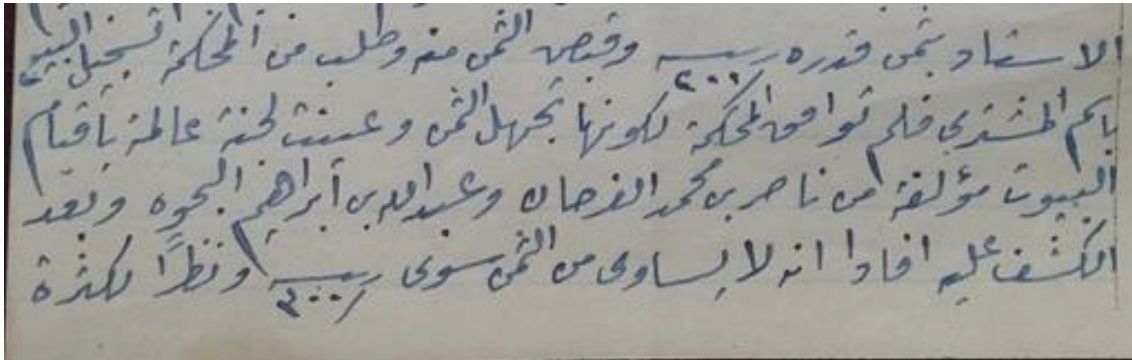 الاستاد بثمن قدره ربيه ٢٠٠٠/ وقبض الثمن منه وطلب من المحكمة تسجيل البيت
باسم المشتري فلم توافق المحكمة لكونها تجهل الثمن وعينت لجنة عالمة بأقيام
البيوت مؤلفة من ناصر بن محمد الفرحان وعبدالله بن ابراهيم وبعد
الكشف عليه افادوا انه لا يساوي من الثمن سوى ربيه ونظرًا لكثرة